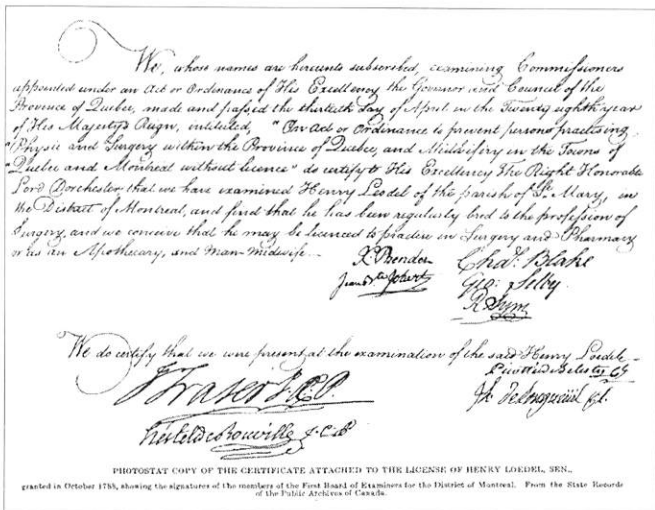 We, whose names are hereunto subscribed, examining Commissioners
appointed under an Act or Ordinance of His Excellency the Governor and Council of the
Province of Quebec, made and passed the thirtieth day of April in the Twenty eighth year
of His Majesty's Reign, intituled, "An Act or Ordinance to prevent persons practising
"Physic and Surgery within the Province of Quebec, and Midwifry in the Towns of
"Quebec and Montreal without licence" do certify to His Excellency The Right Honorable
Lord Dorchester, that we have examined Henry Loedel of the parish of St. Mary, in
the District of Montreal, and find that he has been regularly bred to the profession of
Surgery, and we conceive that he may be licenced to practice in Surgery and Pharmacy
or as an Apothecary, and Man-Midwife.
Chas. Blake
Jean Bte Jobert
Geo: Selby
R. Sym
We do certify that we were present at the examination of the said Henry Loedel
J Fraser J.C.P.
Hertel de Rouville J.C.P.
PHOTOSTAT COPY OF THE CERTIFICATE ATTACHED TO THE LICENSE OF HENRY LOEDEL, SEN.,
granted in October 1788, showing the signatures of the members of the First Board of Examiners for the District of Montreal. From the State Records
of the Public Archives of Canada.